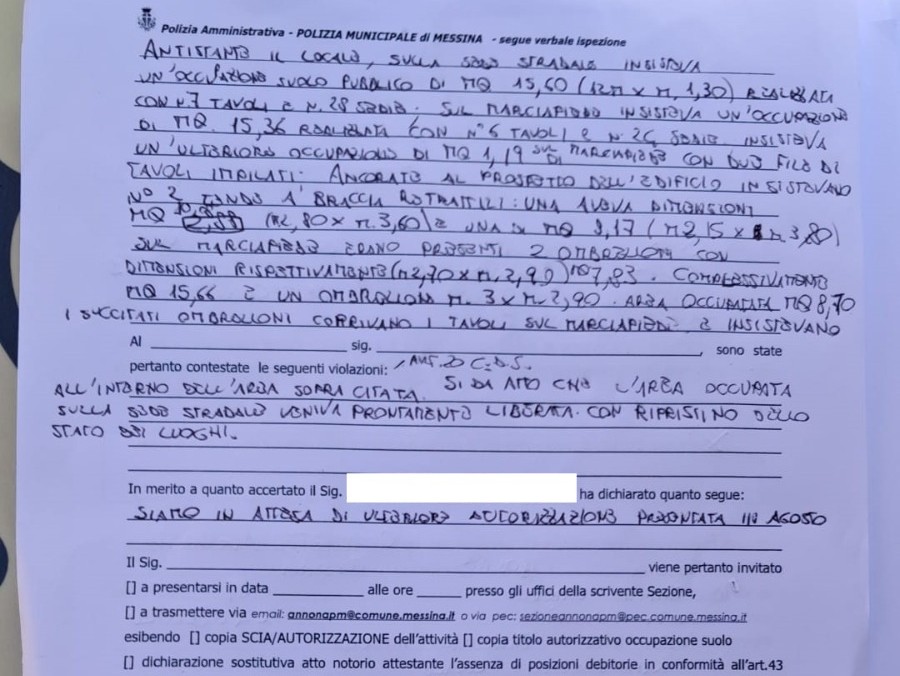 Polizia Amministrativa - POLIZIA MUNICIPALE di MESSINA - segue verbale ispezione
ANTISTANTE IL LOCALE, SULLA SEDE STRADALE INSISTEVA
UN'OCCUPAZIONE SUOLO PUBBLICO DI MQ 15,60 (12M x M. 1,30) REALIZZATA
CON N°7 TAVOLI E N. 28 SEDIE. SUL MARCIAPIEDE INSISTEVA UN'OCCUPAZIONE
DI MQ. 15,36 REALIZZATA CON N°6 TAVOLI E N. 24 SEDIE. INSISTEVA
UN'ULTERIORE OCCUPAZIONE DI MQ 1,19 SUL MARCIAPIEDE CON DUE FILE DI
TAVOLI IMPILATI. ANCORATE AL PROSPETTO DELL'EDIFICIO INSISTEVANO
N° 2 TENDE A BRACCIA RETRATTILI: UNA AVEVA DIMENSIONI
MQ (M2,80 x M. 3,60) E UNA DI MQ 8,17 (M2,15 x M 3,80)
SUL MARCIAPIEDE ERANO PRESENTI 2 OMBRELLONI CON
DIMENSIONI RISPETTIVAMENTE (M2,70 x M. 2,90) MQ 7,83. COMPLESSIVAMENTE
MQ 15,66 E UN OMBRELLONE M. 3 x M. 2,90. AREA OCCUPATA MQ 8,70
I SUCCITATI OMBRELLONI COPRIVANO I TAVOLI SUL MARCIAPIEDE E INSISTEVANO
Al sig. , sono state
pertanto contestate le seguenti violazioni: ART. 20 C.D.S.
ALL'INTERNO DELL'AREA SOPRA CITATA. SI DA ATTO CHE L'AREA OCCUPATA
SULLA SEDE STRADALE VENIVA PRONTAMENTE LIBERATA. CON RIPRISTINO DELLO
STATO DEI LUOGHI.
In merito a quanto accertato il Sig. ha dichiarato quanto segue:
SIAMO IN ATTESA DI ULTERIORE AUTORIZZAZIONE PRESENTATA AGOSTO
Il Sig. viene pertanto invitato
[] a presentarsi in data alle ore presso gli uffici della scrivente Sezione,
[] a trasmettere via email: annonapm@comune.messina.it o via pec: sezioneannonapm@pec.comune.messina.it
esibendo [] copia SCIA/AUTORIZZAZIONE dell'attività [] copia titolo autorizzativo occupazione suolo
[] dichiarazione sostitutiva atto notorio attestante l'assenza di posizioni debitorie in conformità all'art.43